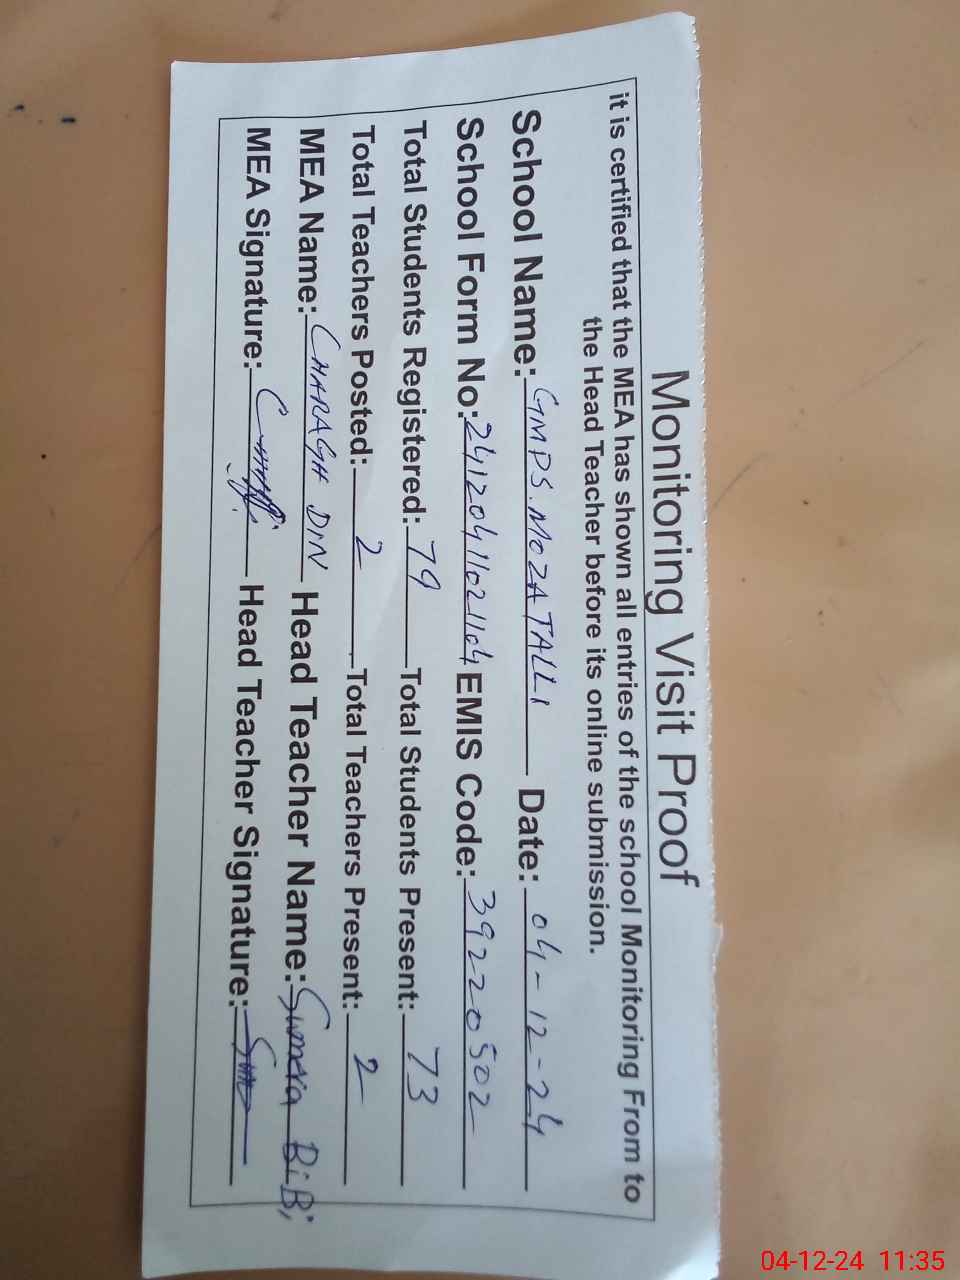 Monitoring Visit Proof
it is certified that the MEA has shown all entries of the school Monitoring From to
the Head Teacher before its online submission.
School Name: GMPS. MOZA TALLI Date: 04-12-24
School Form No: 24120411021104 EMIS Code: 39220502
Total Students Registered: 79 Total Students Present: 73
Total Teachers Posted: 2 Total Teachers Present: 2
MEA Name: CHARAGH DIN Head Teacher Name: Sumera BiBi
MEA Signature: Head Teacher Signature:
04-12-24 11:35